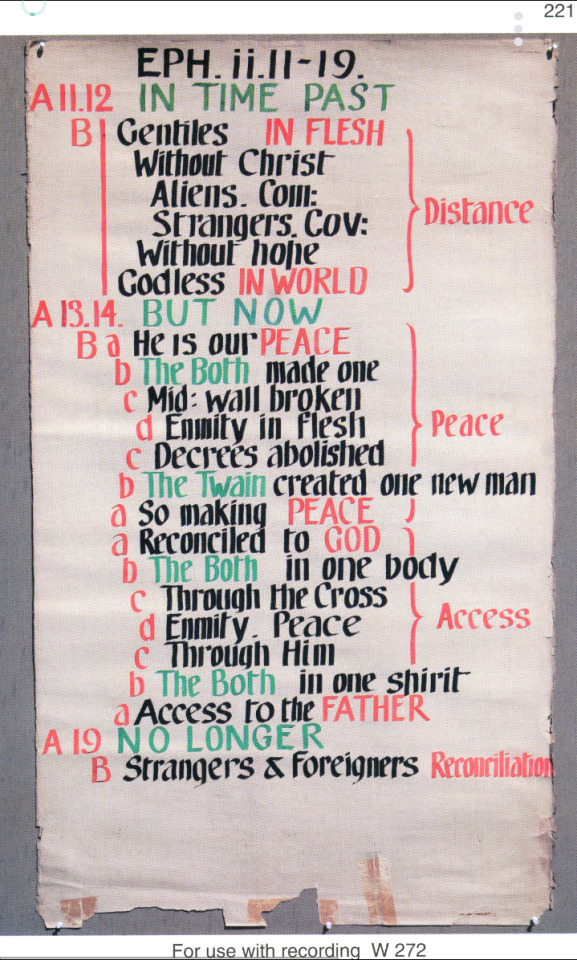 221
EPH. ii.11-19.
A 11.12 IN TIME PAST
B Gentiles IN FLESH
Without Christ
Aliens. Com:
Strangers. Cov:
Distance
Without hope
Godless IN WORLD
A 13.14. BUT NOW
B a He is our PEACE
b The Both made one
c Mid: wall broken
d Enmity in flesh
Peace
c Decrees abolished
b The Twain created one new man
a So making PEACE
a Reconciled to GOD
b The Both in one body
c Through the Cross
Access
d Enmity. Peace
c Through Him
b The Both in one shirit
a Access to the FATHER
A 19 NO LONGER
B Strangers & foreigners Reconciliation
For use with recording W 272